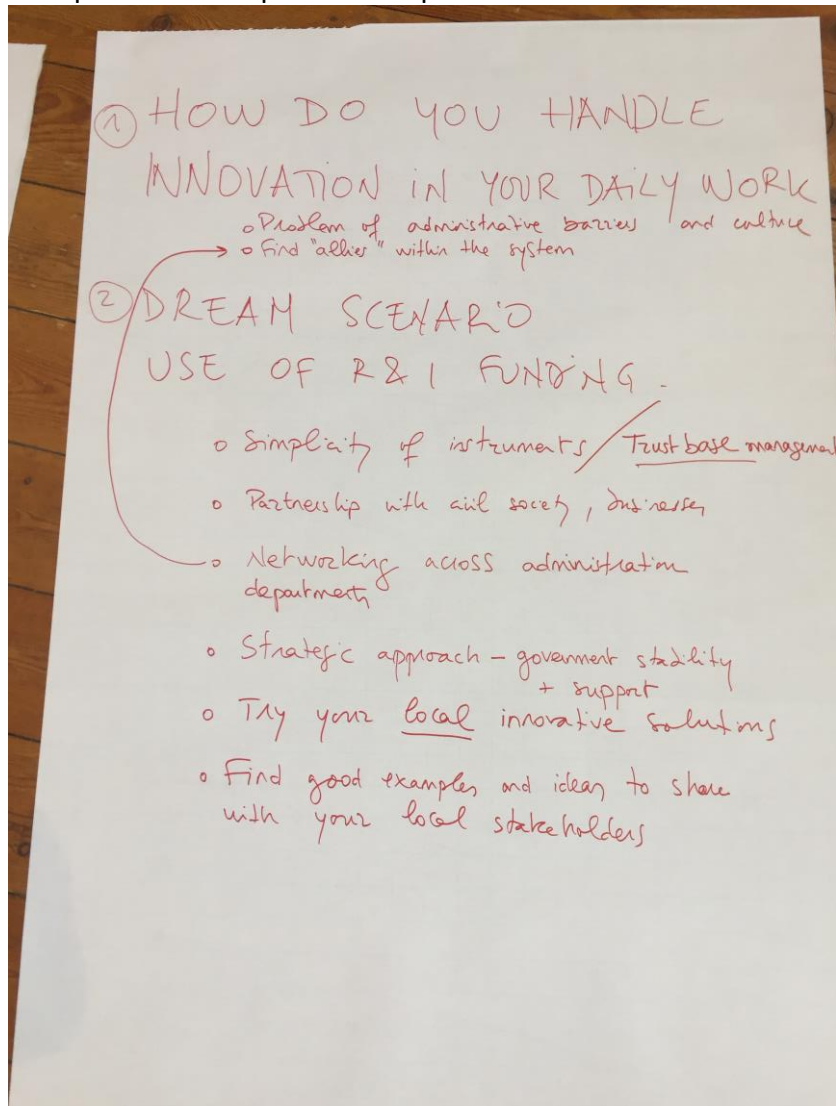 ① HOW DO YOU HANDLE
INNOVATION IN YOUR DAILY WORK
o Problem of administrative barriers and culture
o Find "allies" within the system
② DREAM SCENARIO
USE OF R & I FUNDING.
o Simplicity of instruments / Trust base management
o Partnership with civil society, businesses
o Networking across administration
departments
o Strategic approach – government stability
+ support
o Try your local innovative solutions
o Find good examples and ideas to share
with your local stakeholders